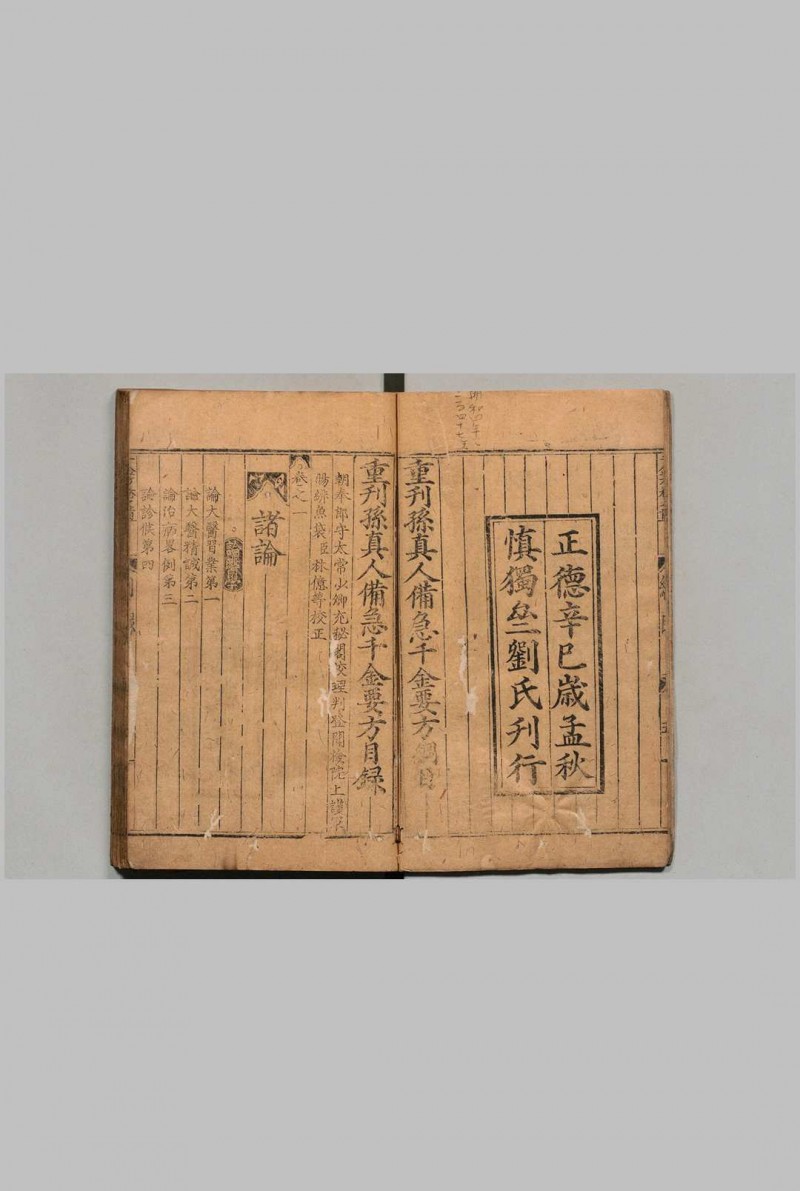 正德辛巳歲孟秋
慎獨𫝊劉氏刊行
重刋孫真人備急千金要方綱目
重刋孫真人備急千金要方目録
朝奉郎守太常少卿充秘閣校理判登聞檢院上護軍
賜緋魚袋臣林億等校正
卷之一
諸論
論大醫習業第一
論大醫精誠第二
論治病畧例第三
論診候第四